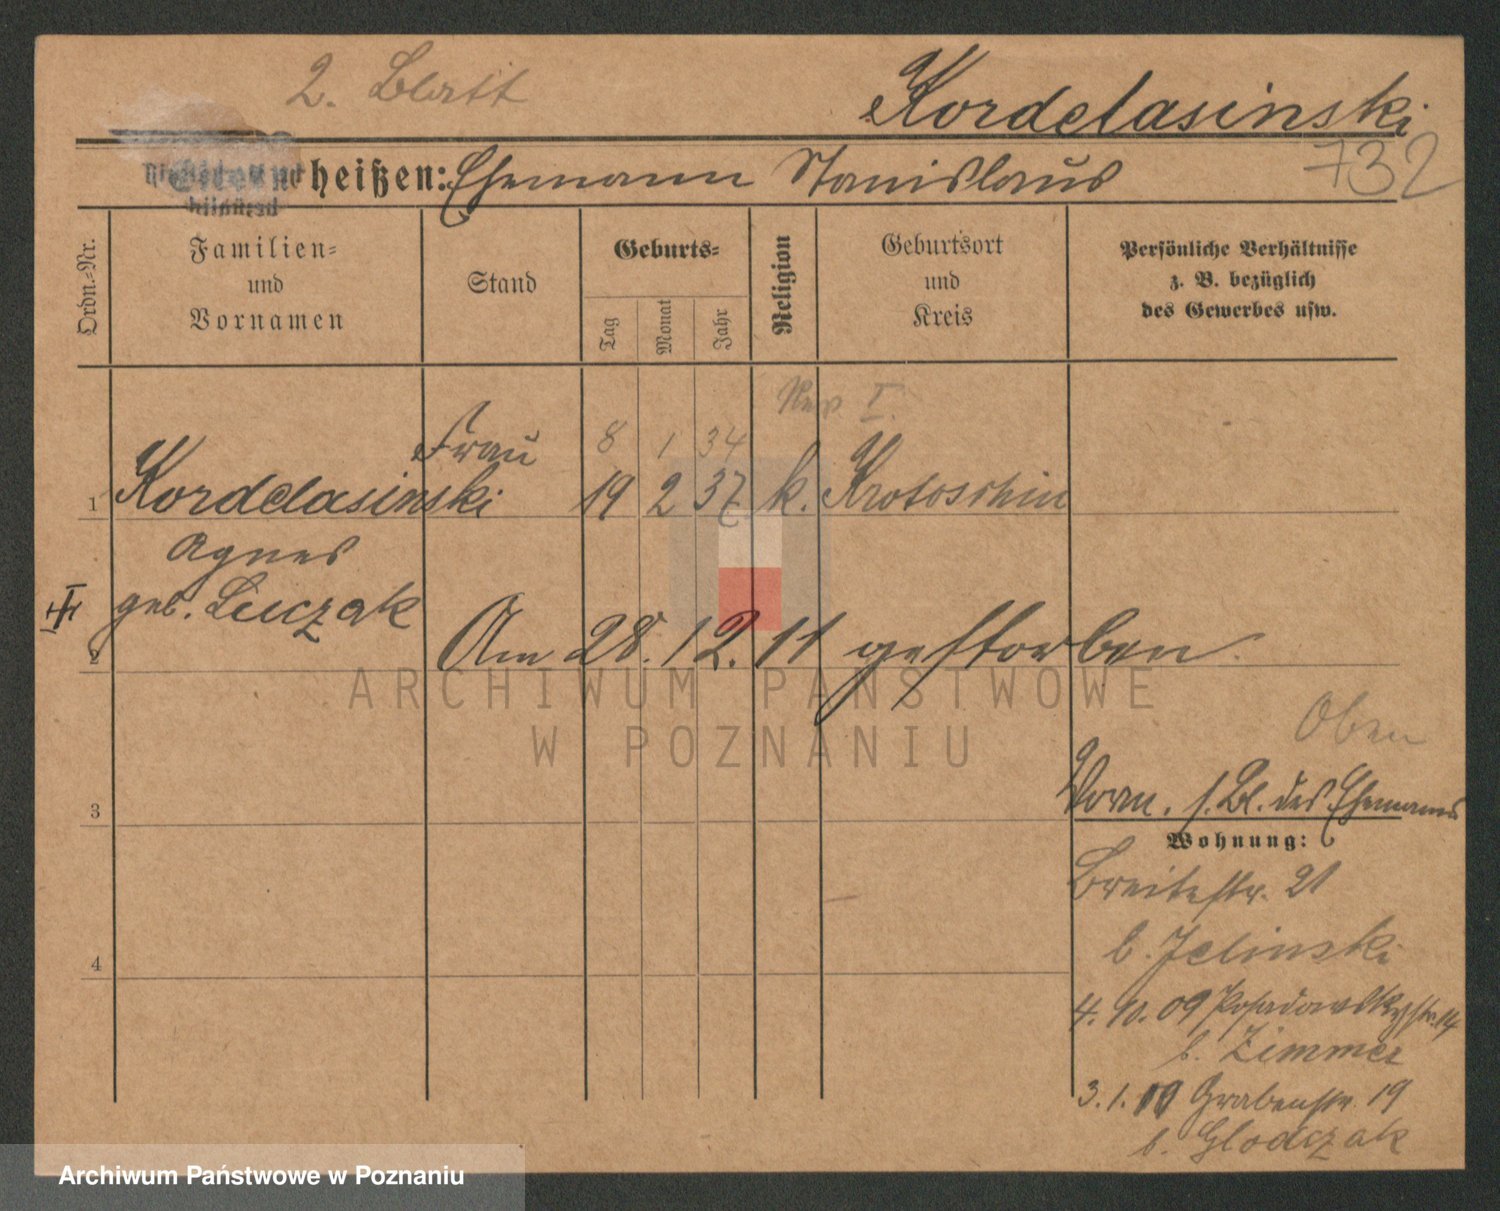 2. Blatt
Kordelasinski
732
heißen: Ehemann Stanislaus
Ordn.-Nr.
Familien- und Vornamen
Stand
Geburts-
Tag
Monat
Jahr
Religion
Geburtsort und Kreis
Persönliche Verhältnisse
z. B. bezüglich
des Gewerbes usw.
I.
Frau 8 1 34
1 Kordelasinski 19 2 37 k. Krotoschin
Agnes
geb. Luczak
2 Am 28. 12. 11 gestorben.
Oben
Vorn. s. Bl. des Ehemanns
3
Wohnung:
Breitestr. 21
b. Jelinski
4
4. 10. 09 Posadowskystr. 14
b. Zimmer
3. 1. 10 Grabenstr. 19
b. Glodczak
ARCHIWUM PAŃSTWOWE
W POZNANIU
Archiwum Państwowe w Poznaniu